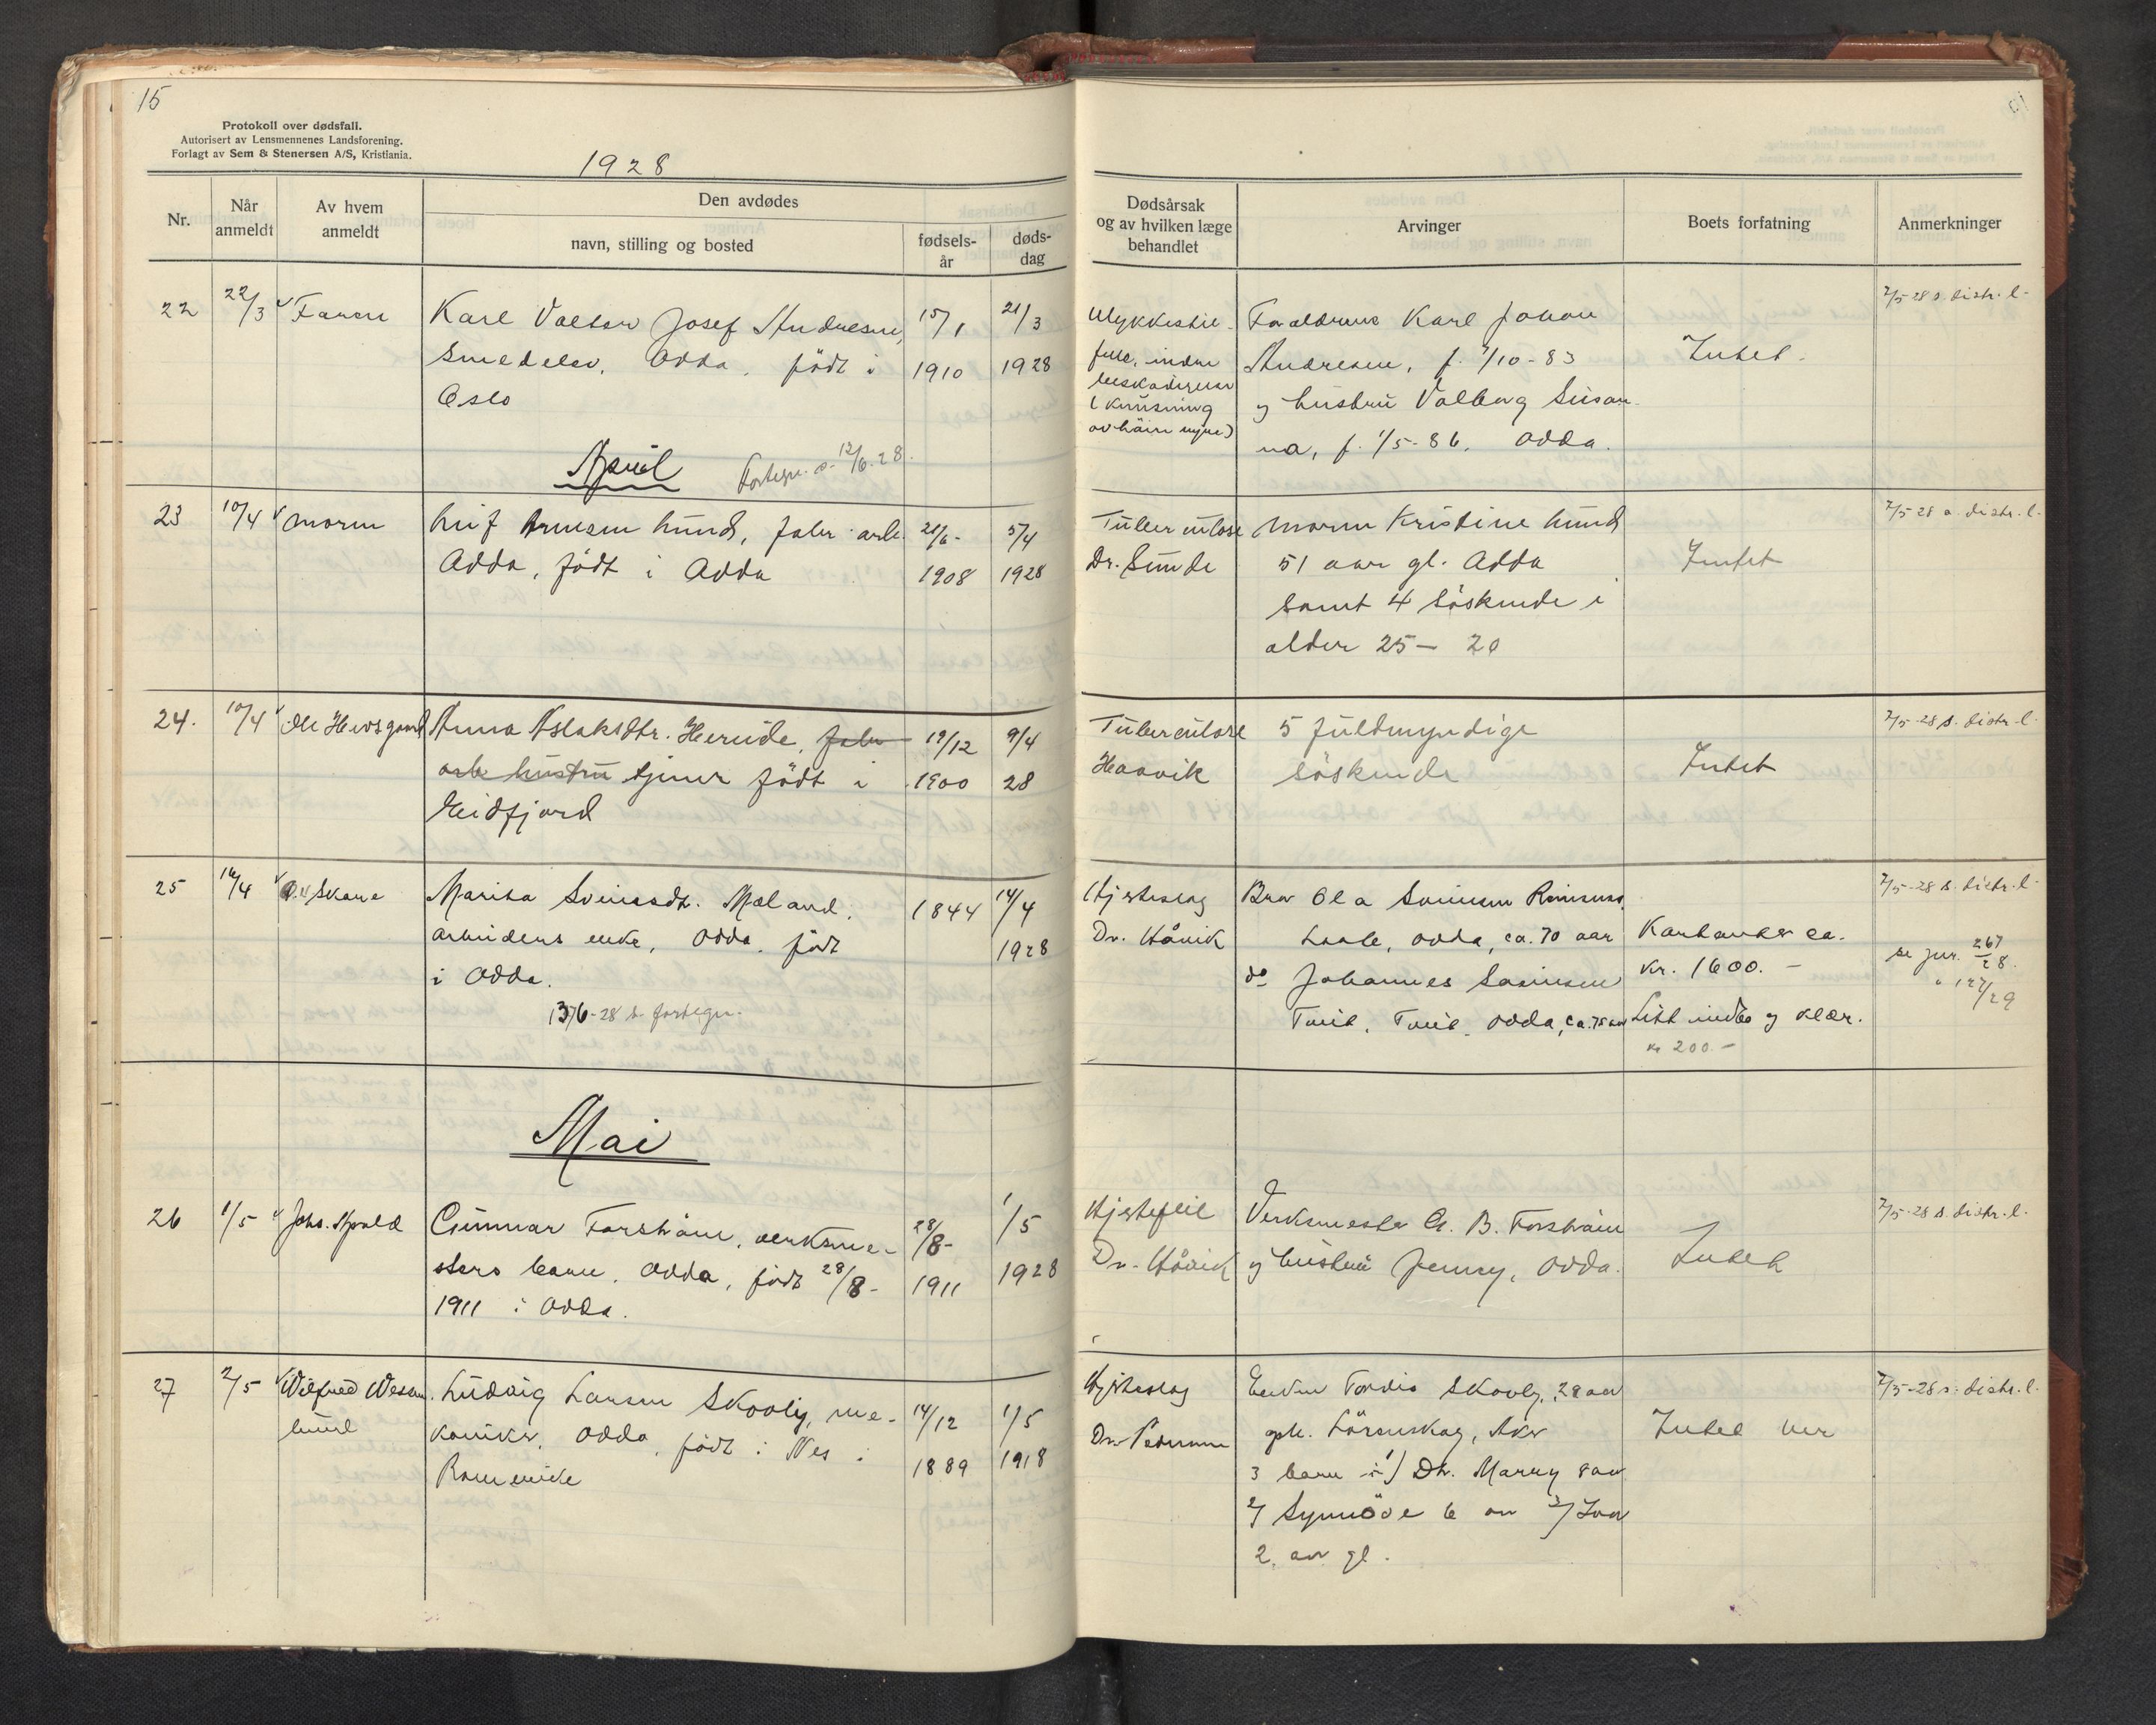 15
Protokoll over dødsfall.
Autorisert av Lensmennenes Landsforening.
Forlagt av Sem & Stenersen A/S, Kristiania.
1928
Nr.
Når anmeldt
Av hvem anmeldt
Den avdødes
navn, stilling og bosted
fødsels-år
døds-dag
Dødsårsak og av hvilken læge behandlet
Arvinger
Boets forfatning
Anmerkninger
22 22/3 Faren Karl Josef Andresen, 15/1 21/3
Odda, født i 1910 1928
Oslo
indre
Foraldrene Karl Johan
Andresen, f. /10-83
og hustru Valborg Susan
na, f. 1/5-86. Odda.
Intet.
2/5-28 s. distr. l.
April
12/6-28.
23 10/4 Moren Leif Arnesen Lund, fabr. arb. 5/4
Odda, født i Odda 1908 1928
Tuberculose
Dr. Sunde
Moren Kristine Lund
51 aar gl. Odda
samt 4 søskende i
alder 25 – 20
Intet
2/5-28 s. distr. l.
24. 10/4 Anna Aslaksdtr. Hereide, fabr 19/12 9/4
arb hustru tjener født i 1900 28
Eidfjord
Tuberculose
Haavik
5 fuldmyndige
söskende
Intet
2/5-28 s. distr. l.
25 16/4 Skare Marita Sveinsdtr. Mæland, 1844 14/4
arbeiders enke, Odda. født 1928
i Odda.
-28 s. fortegn.
Hjerteslag
Dr. Håvik
Bror Ola
Odda, ca. 70 aar
do Johannes
Odda, ca. 75 aar
Kontanter ca.
kr. 1600.-
Litt indbo og klær.
kr 200.-
2/5-28 s. distr. l.
se jnr. 267/28.
" 127/29
Mai
26 1/5 Johs. Apold Gunnar Forström, verksme- 28/8- 1/5
sters barn, Odda, født 28/8- 1911 1928
1911 i Odda.
Hjertefeil
Dr. Håvik
Verksmester G. B. Forström
og hustru Jenny, Odda.
Intet
2/5-28 s. distr. l.
27 2/5 Wilfred Wessen
lund
Ludvig Larsen Skovly, me- 14/12 1/5
kaniker, Odda, født i Nes i 1889 1918
Romerike
Hjerteslag
Dr. Pedersen
Enken Tordis Skovly, 28 aar
gl. Lörenskog, Aker
3 barn 1) Dtr. Marry 8 aar
2/ Synnöve 6 aar 3/ Ivar
2 aar gl.
Intet
2/5-28 s. distr. l.